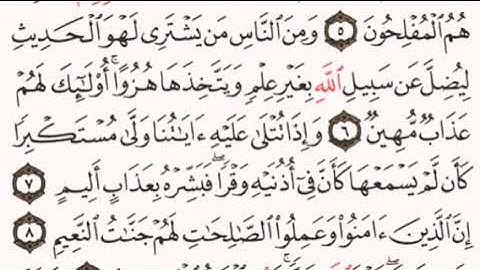 هُمُ ٱلْمُفْلِحُونَ ٥ وَمِنَ ٱلنَّاسِ مَن يَشْتَرِى لَهْوَ ٱلْحَدِيثِ
لِيُضِلَّ عَن سَبِيلِ ٱللَّهِ بِغَيْرِ عِلْمٍ وَيَتَّخِذَهَا هُزُوًا ۚ أُو۟لَٰٓئِكَ لَهُمْ
عَذَابٌ مُّهِينٌ ٦ وَإِذَا تُتْلَىٰ عَلَيْهِ ءَايَٰتُنَا وَلَّىٰ مُسْتَكْبِرًا
كَأَن لَّمْ يَسْمَعْهَا كَأَنَّ فِىٓ أُذُنَيْهِ وَقْرًا ۖ فَبَشِّرْهُ بِعَذَابٍ أَلِيمٍ ٧
إِنَّ ٱلَّذِينَ ءَامَنُوا۟ وَعَمِلُوا۟ ٱلصَّٰلِحَٰتِ لَهُمْ جَنَّٰتُ ٱلنَّعِيمِ ٨